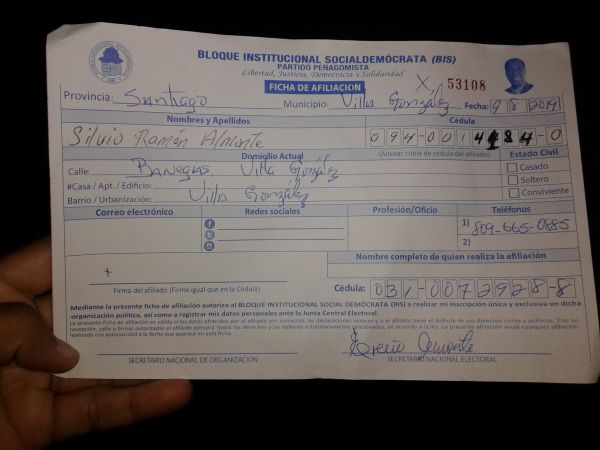 BLOQUE INSTITUCIONAL SOCIALDEMÓCRATA (BIS)
PARTIDO PEÑAGOMISTA
Libertad, Justicia, Democracia y Solidaridad
FICHA DE AFILIACION
X 53108
Provincia: Santiago Municipio: Villa González Fecha: 9 8 2019
Nombres y Apellidos Cédula
Silvio Ramón Almonte 094-001-0
(Anexar copia de cédula del afiliado)
Domicilio Actual Estado Civil
Calle: Banegas, Villa González Casado
#Casa / Apt. / Edificio: Soltero
Barrio / Urbanización: Villa González Conviviente
Correo electrónico Redes sociales Profesión/Oficio Teléfonos
1) 809-665-0885
2)
Nombre completo de quien realiza la afiliación
+
Firma del afiliado (Firme igual que en la Cédula) Cédula: 031-0072928-8
Mediante la presente ficha de afiliación autorizo al BLOQUE INSTITUCIONAL SOCIAL DEMOCRATA (BIS) a realizar mi inscripción única y exclusiva en dicha
organización política, así como a registrar mis datos personales ante la Junta Central Electoral.
La presente ficha de afiliación es válida si los datos ofrecidos por el afiliado son correctos, las declaraciones veraces y si el afiliado tiene el disfrute de sus derechos civiles y políticos. Tras su
recepción, sello y firmas autorizadas el afiliado ejercerá todos los derechos y los deberes estatutariamente consagrados, de acuerdo a la ley. La presente afiliación anula cualquier afiliación
realizada con anterioridad a la fecha que aparece en esta ficha.
Almonte
SECRETARIO NACIONAL DE ORGANIZACIÓN SECRETARIO NACIONAL ELECTORAL